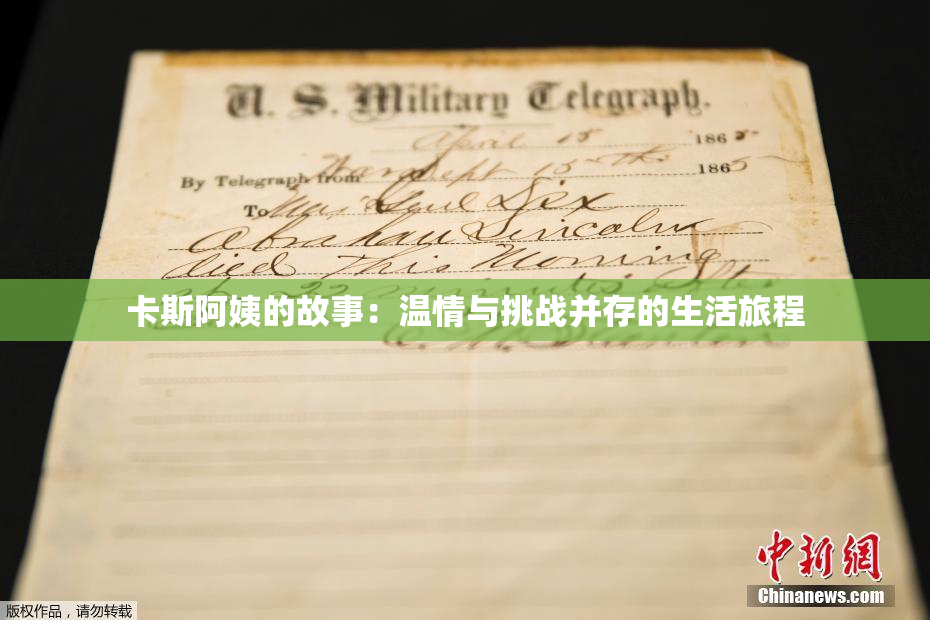 U. S. Military Telegraph.
April 15 1865
By Telegraph from War Dept 15th 1865
To Maj Genl Dix
Abraham Lincoln
died This Morning
at 22 minutes after
卡斯阿姨的故事：温情与挑战并存的生活旅程
E. M. Stanton
中新网
Chinanews.com
版权作品，请勿转载